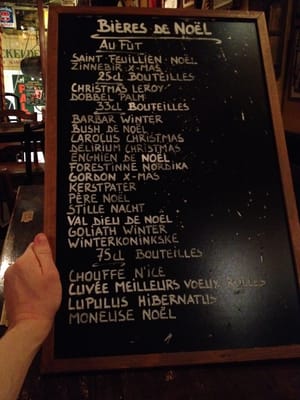 BIÈRES DE NOËL
AU FÛT
SAINT FEUILLIEN NOËL
ZINNEBIR X-MAS
25cl BOUTEILLES
CHRISTMAS LEROY
DOBBEL PALM
33cl BOUTEILLES
BARBAR WINTER
BUSH DE NOËL
CAROLUS CHRISTMAS
DELIRIUM CHRISTMAS
ENGHIEN DE NOËL
FORESTINNE NORDIKA
GORDON X-MAS
KERSTPATER
PÈRE NOËL
STILLE NACHT
VAL DIEU DE NOËL
GOLIATH WINTER
WINTERKONINKSKE
75cl BOUTEILLES
CHOUFFE N'ICE
CUVÉE MEILLEURS VOEUX RULLES
LUPULUS HIBERNATUS
MONEUSE NOËL